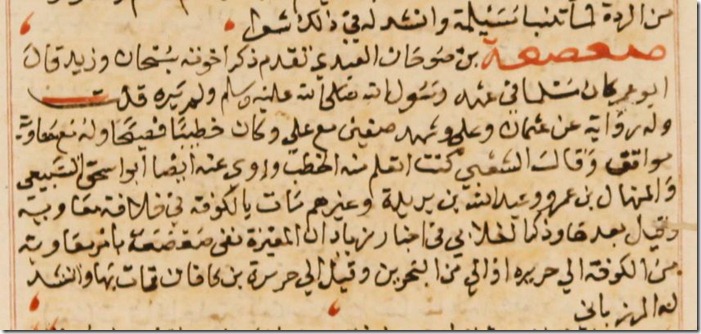 من الردة لما تنبا مسيلمة وانشد له في ذلك شعرا
صعصعة بن صوحان العبدي تقدم ذكر اخوته سيحان وزيد قال
ابو عمر كان مسلما في عهد رسول الله صلى الله عليه وسلم ولم يره قلت
وله رواية عن عثمان وعلي وشهد صفين مع علي وكان خطيبا فصيحا وله مع معاوية
مواقف وقال الشعبي كنت اتعلم منه الخطب وروي عنه ايضا ابو اسحق السبيعي
والمنهال بن عمرو وعبد الله بن بريدة وغيرهم مات بالكوفة في خلافة معاوية
وقيل بعدها وذكر العلابي في اخبار زياد ان المغيرة نفى صعصعة بامر معاوية
من الكوفة الي جزيره او الي من البحرين وقيل الي جزيرة بن كافان فمات بها وانشد
له المرزباني